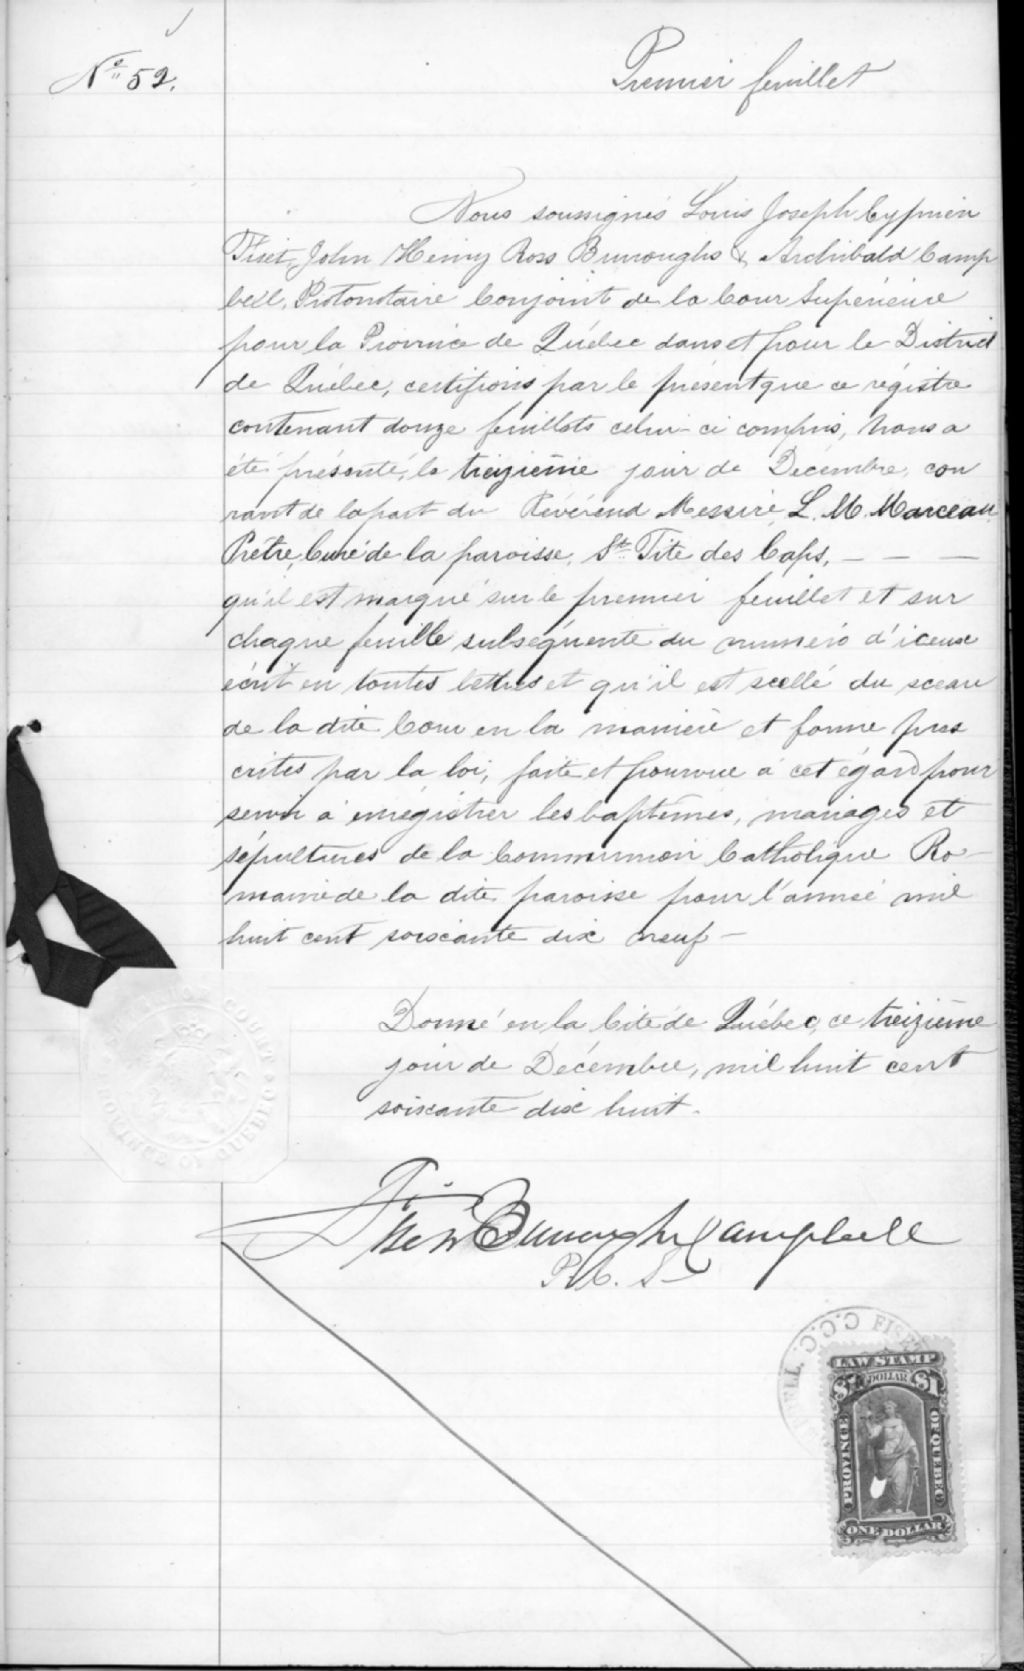 No 52.
Premier feuillet
Nous soussignés Louis Joseph Cyprien
Fiset, John Henry Ross Burroughs & Archibald Camp
bell, Protonotaire Conjoint de la Cour Supérieure
pour la Province de Québec dans et pour le District
de Québec, certifions par le présent que ce régistre
contenant douze feuillets celui-ci compris, nous a
été présenté, le treizième jour de Décembre, cou
rant de la part du Révérend Messire, L. M. Marceau
Prêtre, Curé de la paroisse, St. Tite des Caps, — — —
qu'il est marqué sur le premier feuillet et sur
chaque feuille subséquente du numéro d'iceux
écrit en toutes lettres et qu'il est scellé du sceau
de la dite Cour en la manière et forme pres
crites par la loi, faite et pourvue à cet égard pour
servir à enrégistrer les baptêmes, mariages et
sépultures de la Communion Catholique Ro-
maine de la dite paroisse pour l'année mil
huit cent soixante dix neuf —
Donné en la Cité de Québec, ce treizième
jour de Décembre, mil huit cent
soixante dix huit.
Fiset Burroughs Campbell
P. C. S
SUPERIOR COURT
PROVINCE OF QUEBEC
C.C.C. FISE
LAW STAMP
$1 DOLLAR $1
PROVINCE OF QUEBEC
ONE DOLLAR